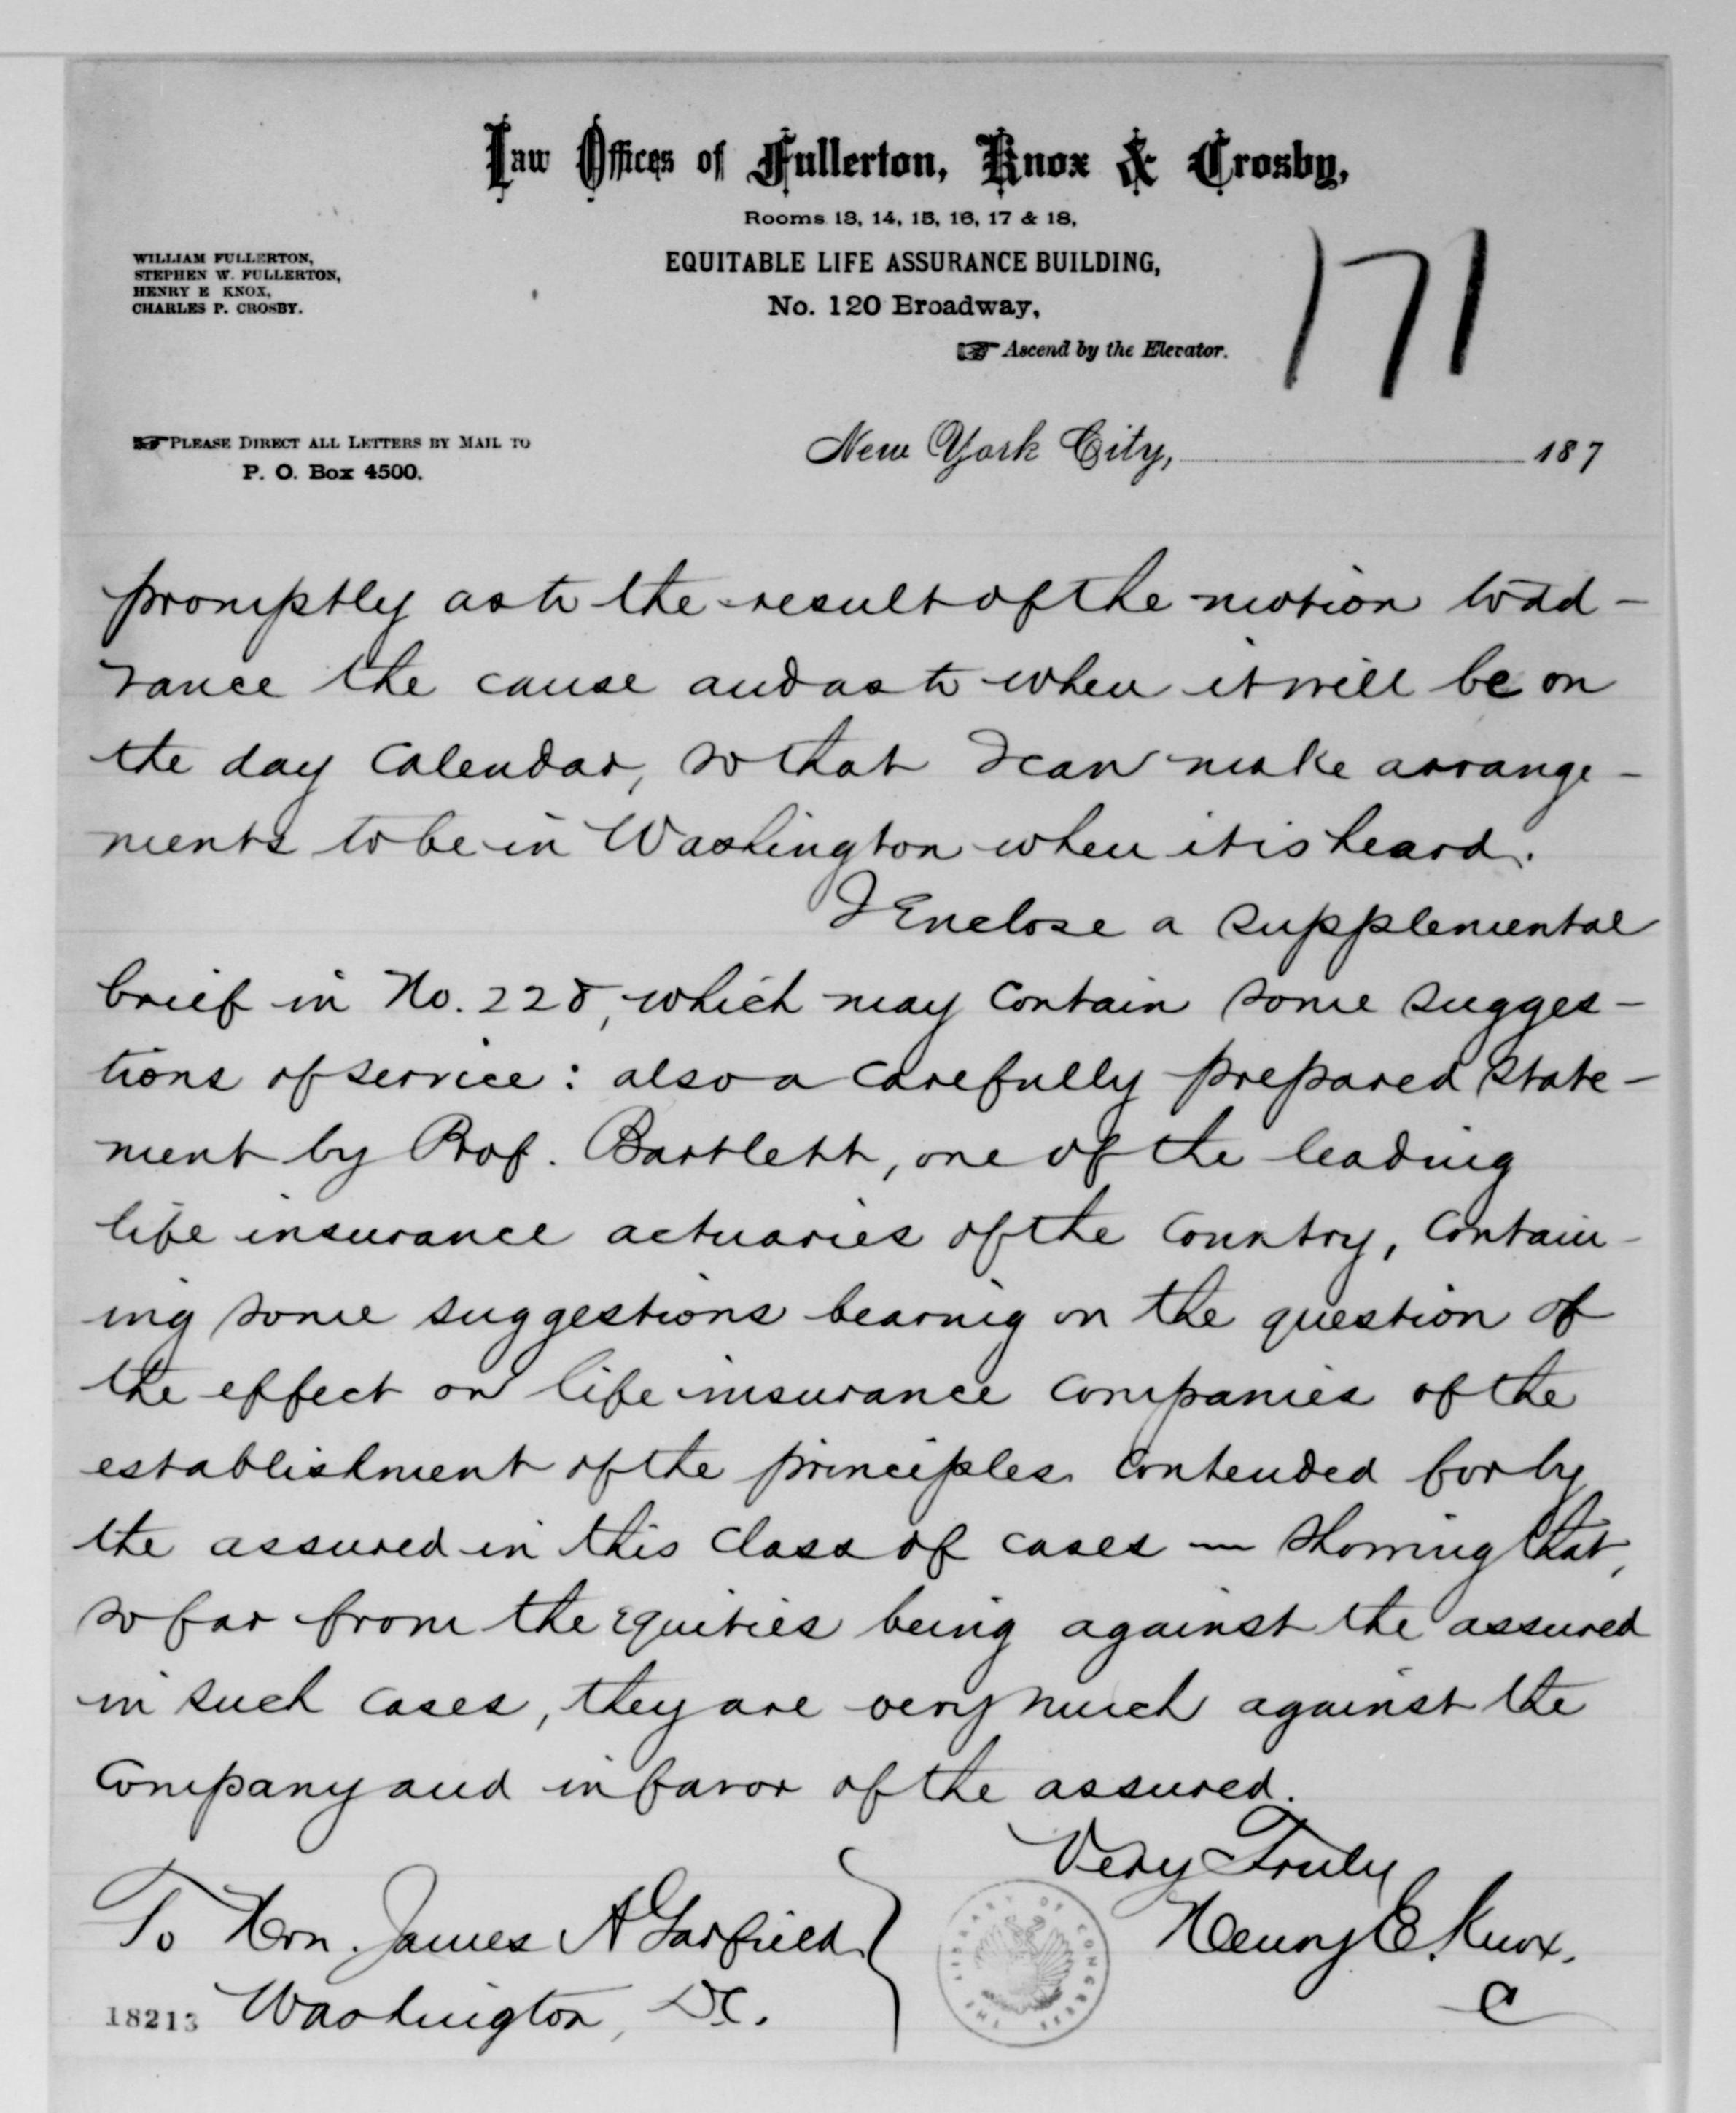 Law Offices of Fullerton, Knox & Crosby,
Rooms 13, 14, 15, 16, 17 & 18,
WILLIAM FULLERTON,
STEPHEN W. FULLERTON,
HENRY E KNOX,
CHARLES P. CROSBY.
EQUITABLE LIFE ASSURANCE BUILDING,
No. 120 Broadway,
171
☞ Ascend by the Elevator.
☞ PLEASE DIRECT ALL LETTERS BY MAIL TO
P. O. Box 4500.
New York City, 187
promptly as to the result of the motion to ad-
vance the cause and as to when it will be on
the day calendar, so that I can make arrange-
ments to be in Washington when it is heard.
I Enclose a supplemental
brief in No. 228, which may contain some sugges-
tions of service: also a carefully prepared state-
ment by Prof. Bartlett, one of the leading
life insurance actuaries of the Country, contain-
ing some suggestions bearing on the question of
the effect on life insurance companies of the
establishment of the principles contended for by
the assured in this class of cases — showing that,
so far from the equities being against the assured
in such cases, they are very much against the
Company and in favor of the assured.
Very Truly
Henry E. Knox.
C
To Hon. James A Garfield
Washington, D.C.
18213
THE LIBRARY OF CONGRESS